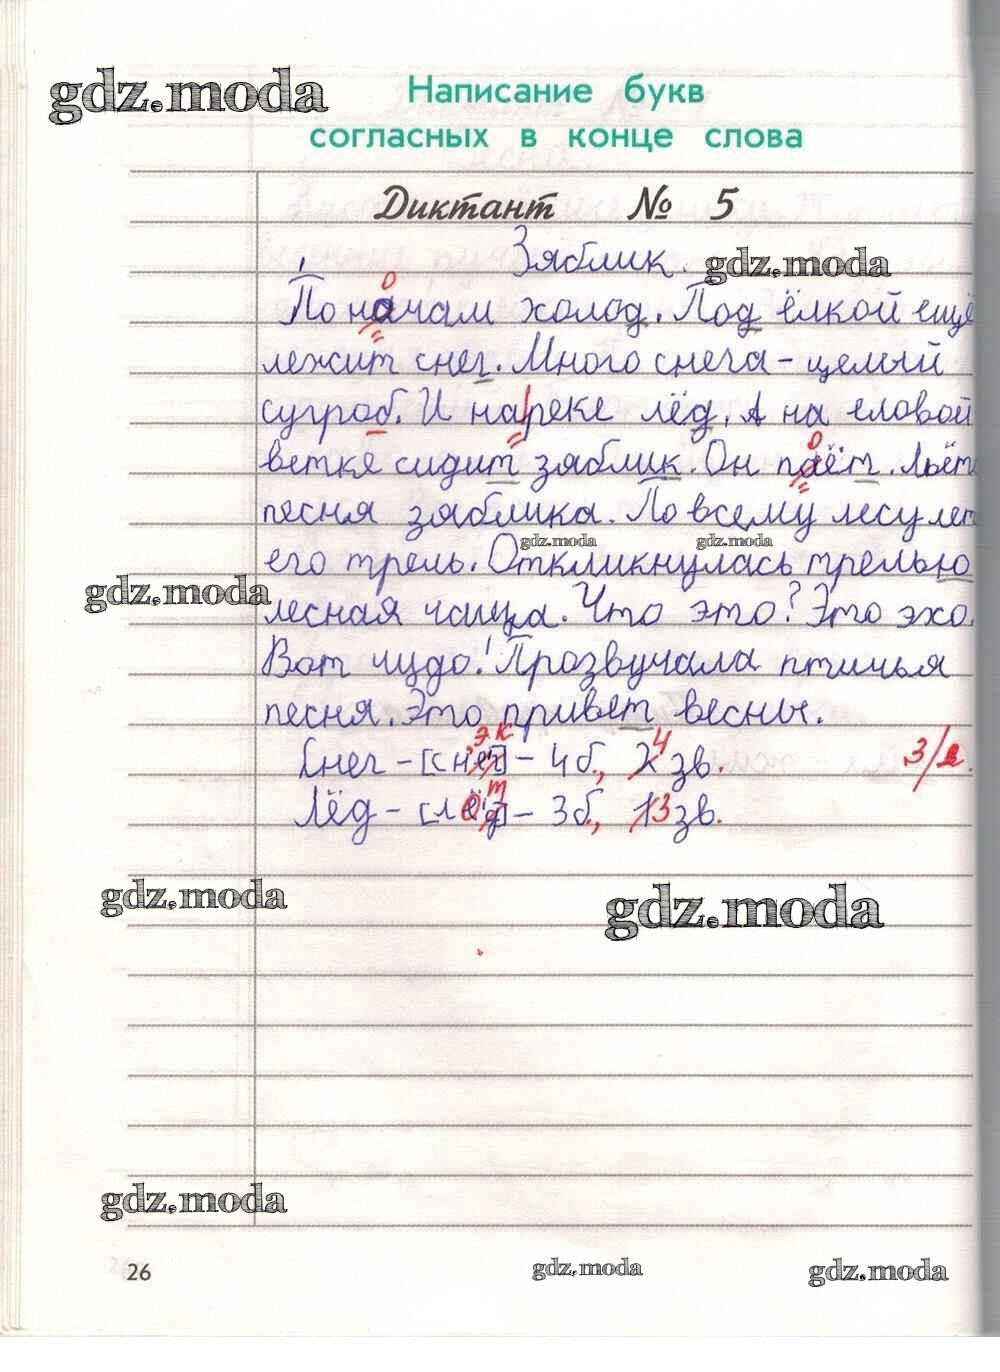 gdz.moda
Написание букв
согласных в конце слова
Диктант № 5
Зяблик.
gdz.moda
о
По начам холод. Под ёлкой ещё
лежит снег. Много снега - целый
сугроб. И на реке лёд. А на еловой
о
ветке сидит зяблик. Он паёт. Льёт
песня зяблика. По всему лесу лет
gdz.moda gdz.moda
его трель. Откликнулась трелью
gdz.moda
лесная чаща. Что это? Это эхо.
Вот чудо! Прозвучала птичья
песня. Это привет весны.
эк 4
Снег - [снег] - 4 б., зв. 3/
т
Лёд - [лёд] - 3 б., 3 зв.
gdz.moda
gdz.moda
gdz.moda
26
gdz.moda
gdz.moda